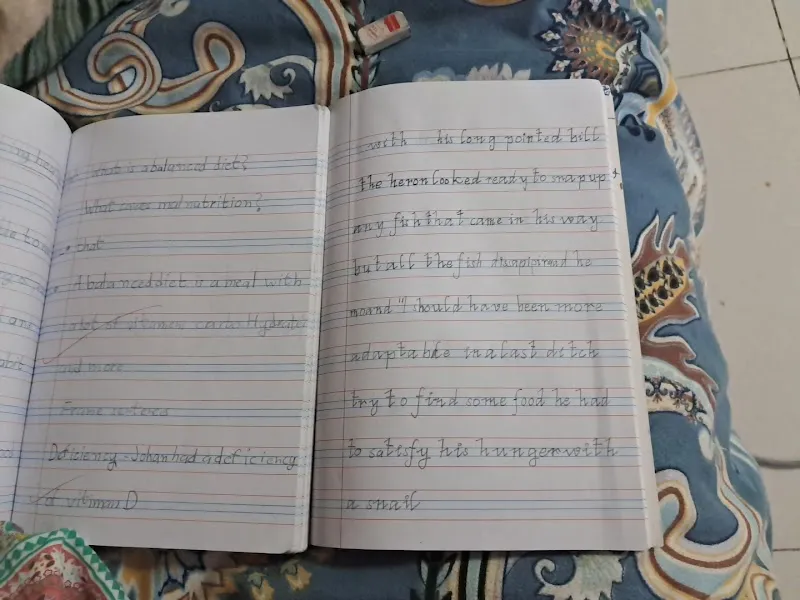 whats is a balanced diet?
What causes malnutrition?
that
A balanced diet is a meal with
a lot of vitamens carbo Hydrates
and more
Frame sentences
Deficiency - Johan had a deficiency
of vitman D
with his long pointed bill
the heron looked ready to snap up
any fish that came in his way
but all the fish disappipread he
moand "I should have been more
adaptable in a last ditch
try to find some food he had
to satisfy his hunger with
a snail